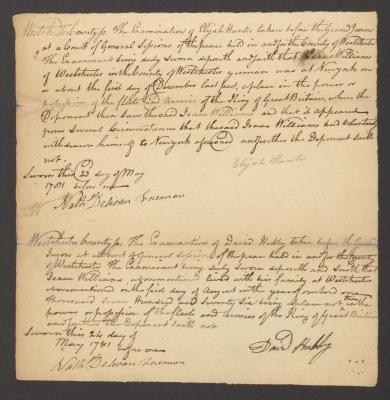 WestChester County ss. The Examination of Elijah Hunter taken before the Grand Jurors
at a Court of General Sessions of the peace held in and for the County of Westchester
The Examinant being duly Sworn deposeth and saith that Isaac Williams
of Westchester in the County of Westchester yeoman was at Newyork on
or about the first day of December last past, a place in the power or
possession of the fleets and Armies of the King of Great Britain, where the
Deponent then Saw the said Isaac Williams and that it appeared
from Several Circumstances that the said Isaac Williams had Voluntarily
withdrawn himself to Newyork aforesaid and further the Deponent saith
not.
Elijah Hunter
Sworn this 23 day of May
1781 before me
Nathl. Delivan Foreman
WestChester County ss. The Examination of David Hubby taken before the Grand
Jurors at a Court of General Sessions of the peace held in and for the County
of Westchester The Examinant being duly Sworn deposeth and Saith that
Isaac Williams aforementioned lived with his family at Westchester
abovementioned on the first day of August in the year of our Lord one
thousand Seven Hundred and Seventy Six being a place not then in the
power or possession of the fleets and Armies of the King of Great Britain
and further the Deponent saith not
Sworn this 24 day of
May 1781 before me
David Hubby
Nathl. Delivan Foreman